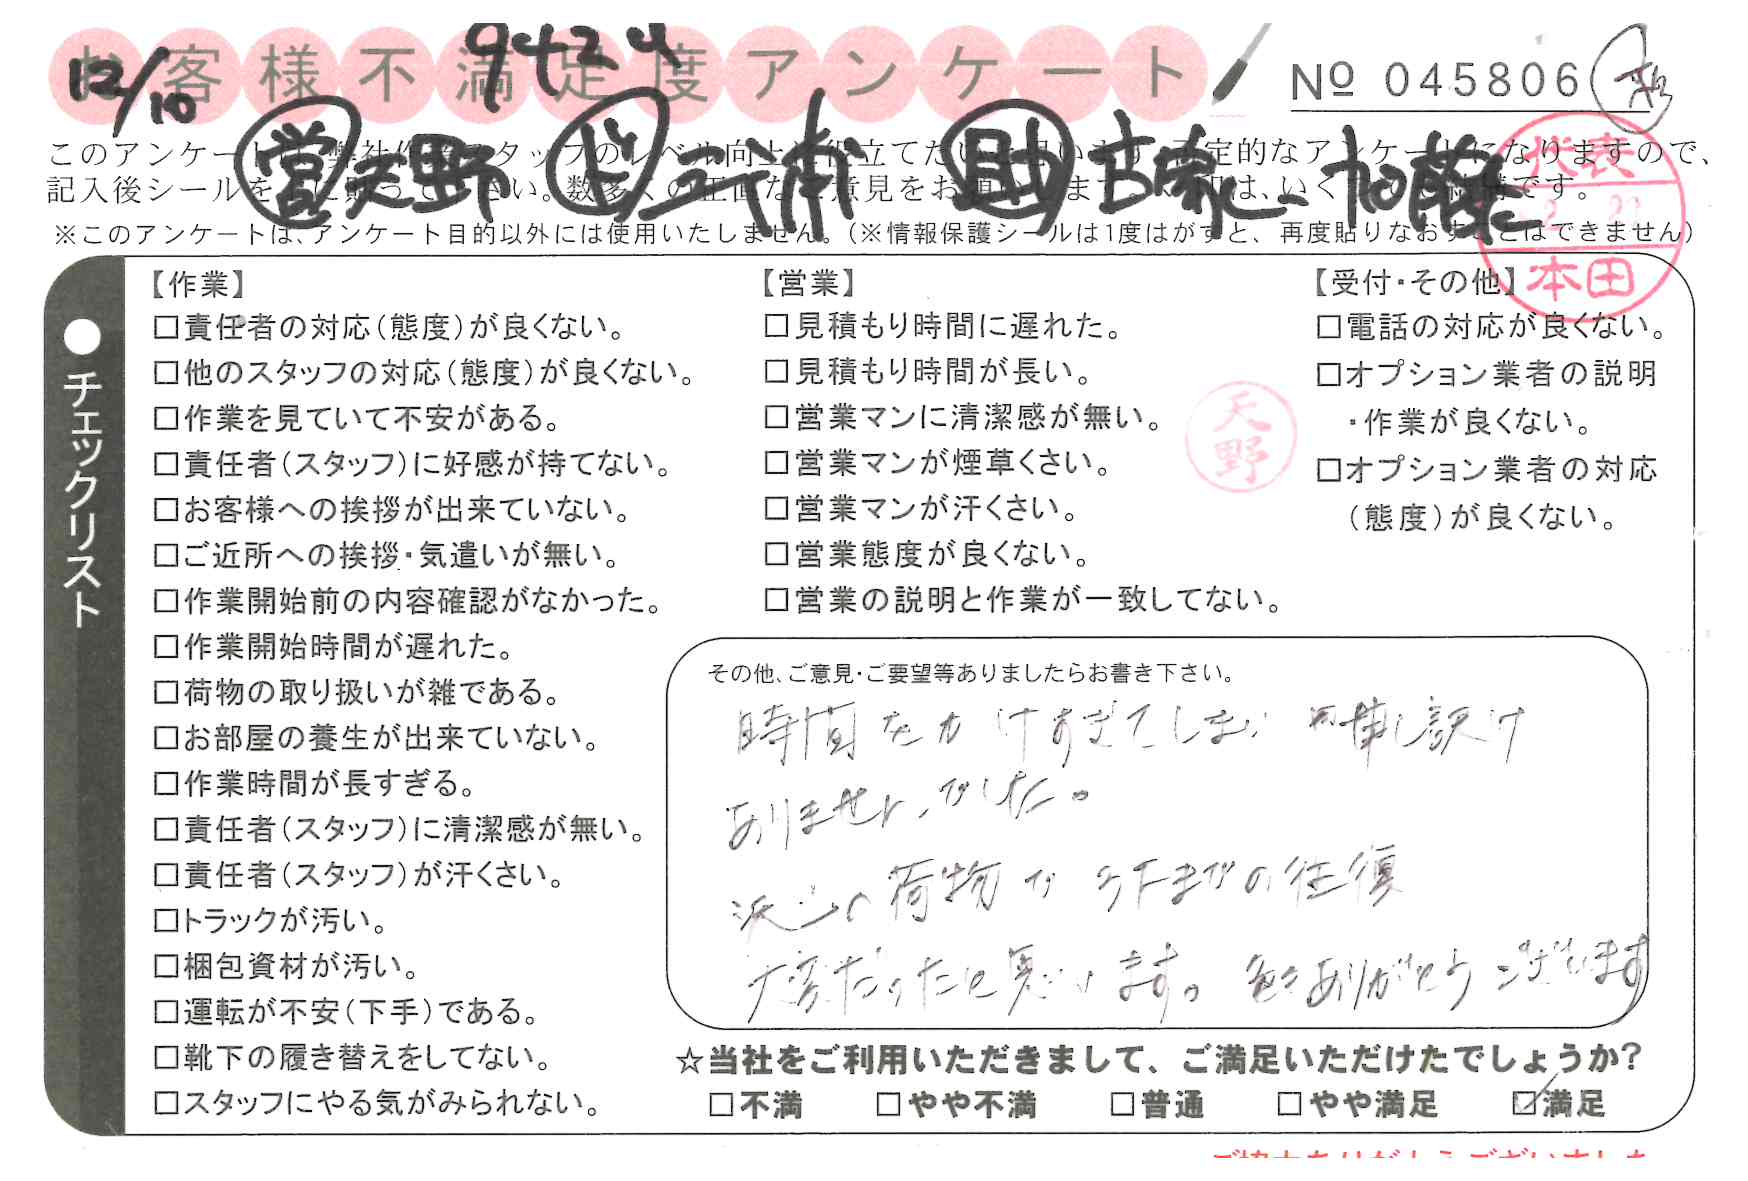 お客様不満足度アンケート
9424
12/10
No 045806
営 天野 作 三浦 助 古家 加藤
このアンケートは、弊社作業スタッフのレベル向上に役立てたいと思います。否定的なアンケートになりますので、
記入後シールを上に貼って下さい。数多くの正直なご意見をお願いします。
※このアンケートは、アンケート目的以外には使用いたしません。(※情報保護シールは1度はがすと、再度貼りなおすことはできません)
代表
本田
天野
●チェックリスト
【作業】
□責任者の対応(態度)が良くない。
□他のスタッフの対応(態度)が良くない。
□作業を見ていて不安がある。
□責任者(スタッフ)に好感が持てない。
□お客様への挨拶が出来ていない。
□ご近所への挨拶・気遣いが無い。
□作業開始前の内容確認がなかった。
□作業開始時間が遅れた。
□荷物の取り扱いが雑である。
□お部屋の養生が出来ていない。
□作業時間が長すぎる。
□責任者(スタッフ)に清潔感が無い。
□責任者(スタッフ)が汗くさい。
□トラックが汚い。
□梱包資材が汚い。
□運転が不安(下手)である。
□靴下の履き替えをしてない。
□スタッフにやる気がみられない。
【営業】
□見積もり時間に遅れた。
□見積もり時間が長い。
□営業マンに清潔感が無い。
□営業マンが煙草くさい。
□営業マンが汗くさい。
□営業態度が良くない。
□営業の説明と作業が一致してない。
【受付・その他】
□電話の対応が良くない。
□オプション業者の説明
・作業が良くない。
□オプション業者の対応
(態度)が良くない。
その他、ご意見・ご要望等ありましたらお書き下さい。
時間をかけすぎてしまい申し訳け
ありませんでした。
沢山の荷物で 3Fまでの往復
大変だったと思います。色々ありがとうございます
☆当社をご利用いただきまして、ご満足いただけたでしょうか?
□不満 □やや不満 □普通 □やや満足 ☑満足
ご協力ありがとうございました